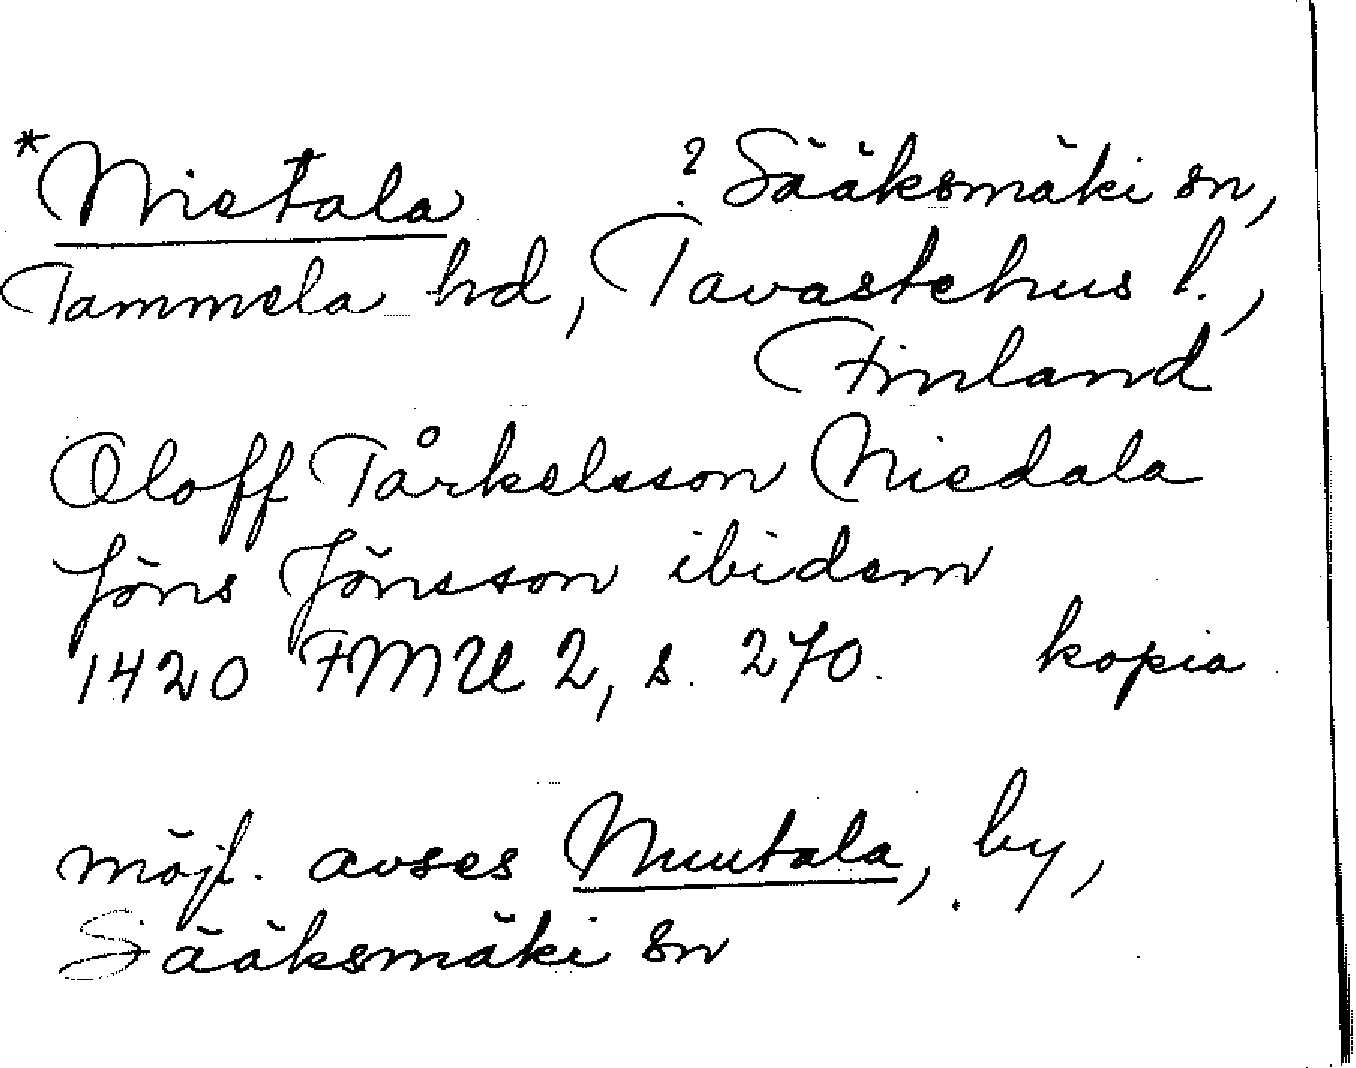 *Nietala ? Sääksmäki sn,
Tammela hd, Tavastehus l.,
Finland
Oloff Tårkelsson Niedala
Jöns Jönsson ibidem
1420 FMU 2, s. 270. kopia
möjl. avses Nuutala, by,
Sääksmäki sn